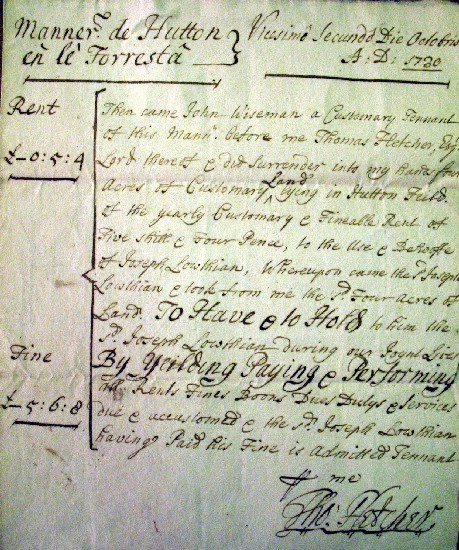 Manner: de Hutton
en le Forresta
Vicesimo Secundo Die Octobris
A: D: 1730
Rent
£-0:5:4
Then came John Wiseman a Customary Tennant
of this Mann: before me Thomas Fletcher, Esq
Lord thereof & did Surrender into my hands four
Acres of Customary Land lying in Hutton Feild
of the yearly Customary & Fineable Rent of
Five shill & Four Pence, to the Use & Behoofe
of Joseph Lowthian, Whereupon came the sd Joseph
Lowthian & took from me the sd Four Acres of
Land. To Have & to Hold to him the
sd Joseph Lowthian During our Joynt Lives
Fine
By Yeilding Paying & Performing
all Rents Fines Boons Dues Dutys & Services
£-5:6:8
due & accustomed & the sd Joseph Lowthian
having Paid his Fine is Admitted Tennant
me
Tho: Fletcher